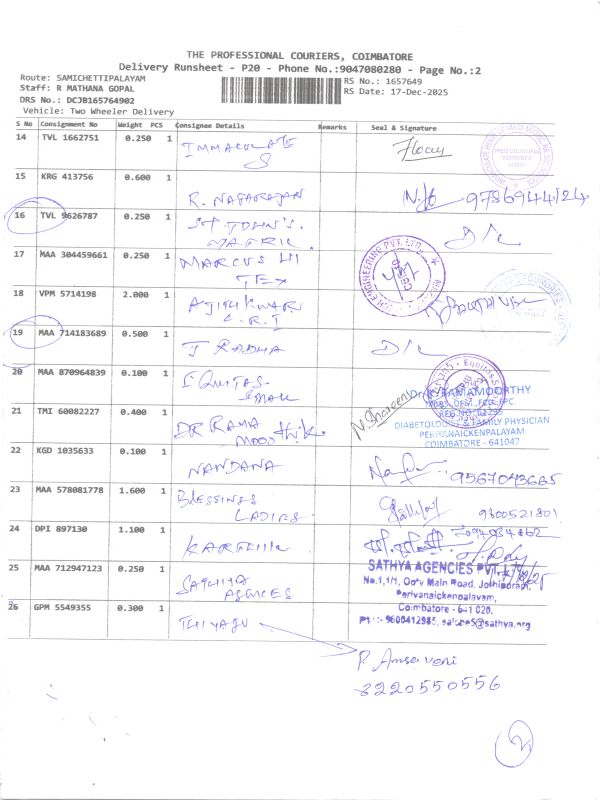 THE PROFESSIONAL COURIERS, COIMBATORE
Delivery Runsheet - P20 - Phone No.:9047080280 - Page No.:2
Route: SAMICHETTIPALAYAM
Staff: R MATHANA GOPAL
DRS No.: DCJB165764902
Vehicle: Two Wheeler Delivery
RS No.: 1657649
RS Date: 17-Dec-2025
S No Consignment No Weight PCS Consignee Details Remarks Seal & Signature
14 TVL 1662751 0.250 1 IMMACULATE
S
15 KRG 413756 0.600 1 R. NAGARAJAN
16 TVL 9626787 0.250 1 ST JOHN'S. D/L
MATRIC.
17 MAA 304459661 0.250 1 MARCUS HI
TEX
18 VPM 5714198 2.000 1
19 MAA 714183689 0.500 1 T RADHA D/L
20 MAA 870964839 0.100 1 EQUITAS
21 TMI 60082227 0.400 1 DR RAMA
N. Shareen
Dr. K. RAMAMOORTHY
DIABETOLOGY & FAMILY PHYSICIAN
PERIYANAICKENPALAYAM
COIMBATORE - 641047
22 KGD 1035633 0.100 1 NANDANA 9567043665
23 MAA 578081778 1.600 1 BLESSINGS 9800521801
LADIES
24 DPI 897130 1.100 1
25 MAA 712947123 0.250 1 SATHYA
AGENCIES
SATHYA AGENCIES PVT. LTD
No.1,1/1, Ooty Main Road, Jothipuram,
Periyanaickenpalayam,
Coimbatore - 641 020.
26 GPM 5549355 0.300 1 THIYAGU
P. Amsaveni
8220550556
2